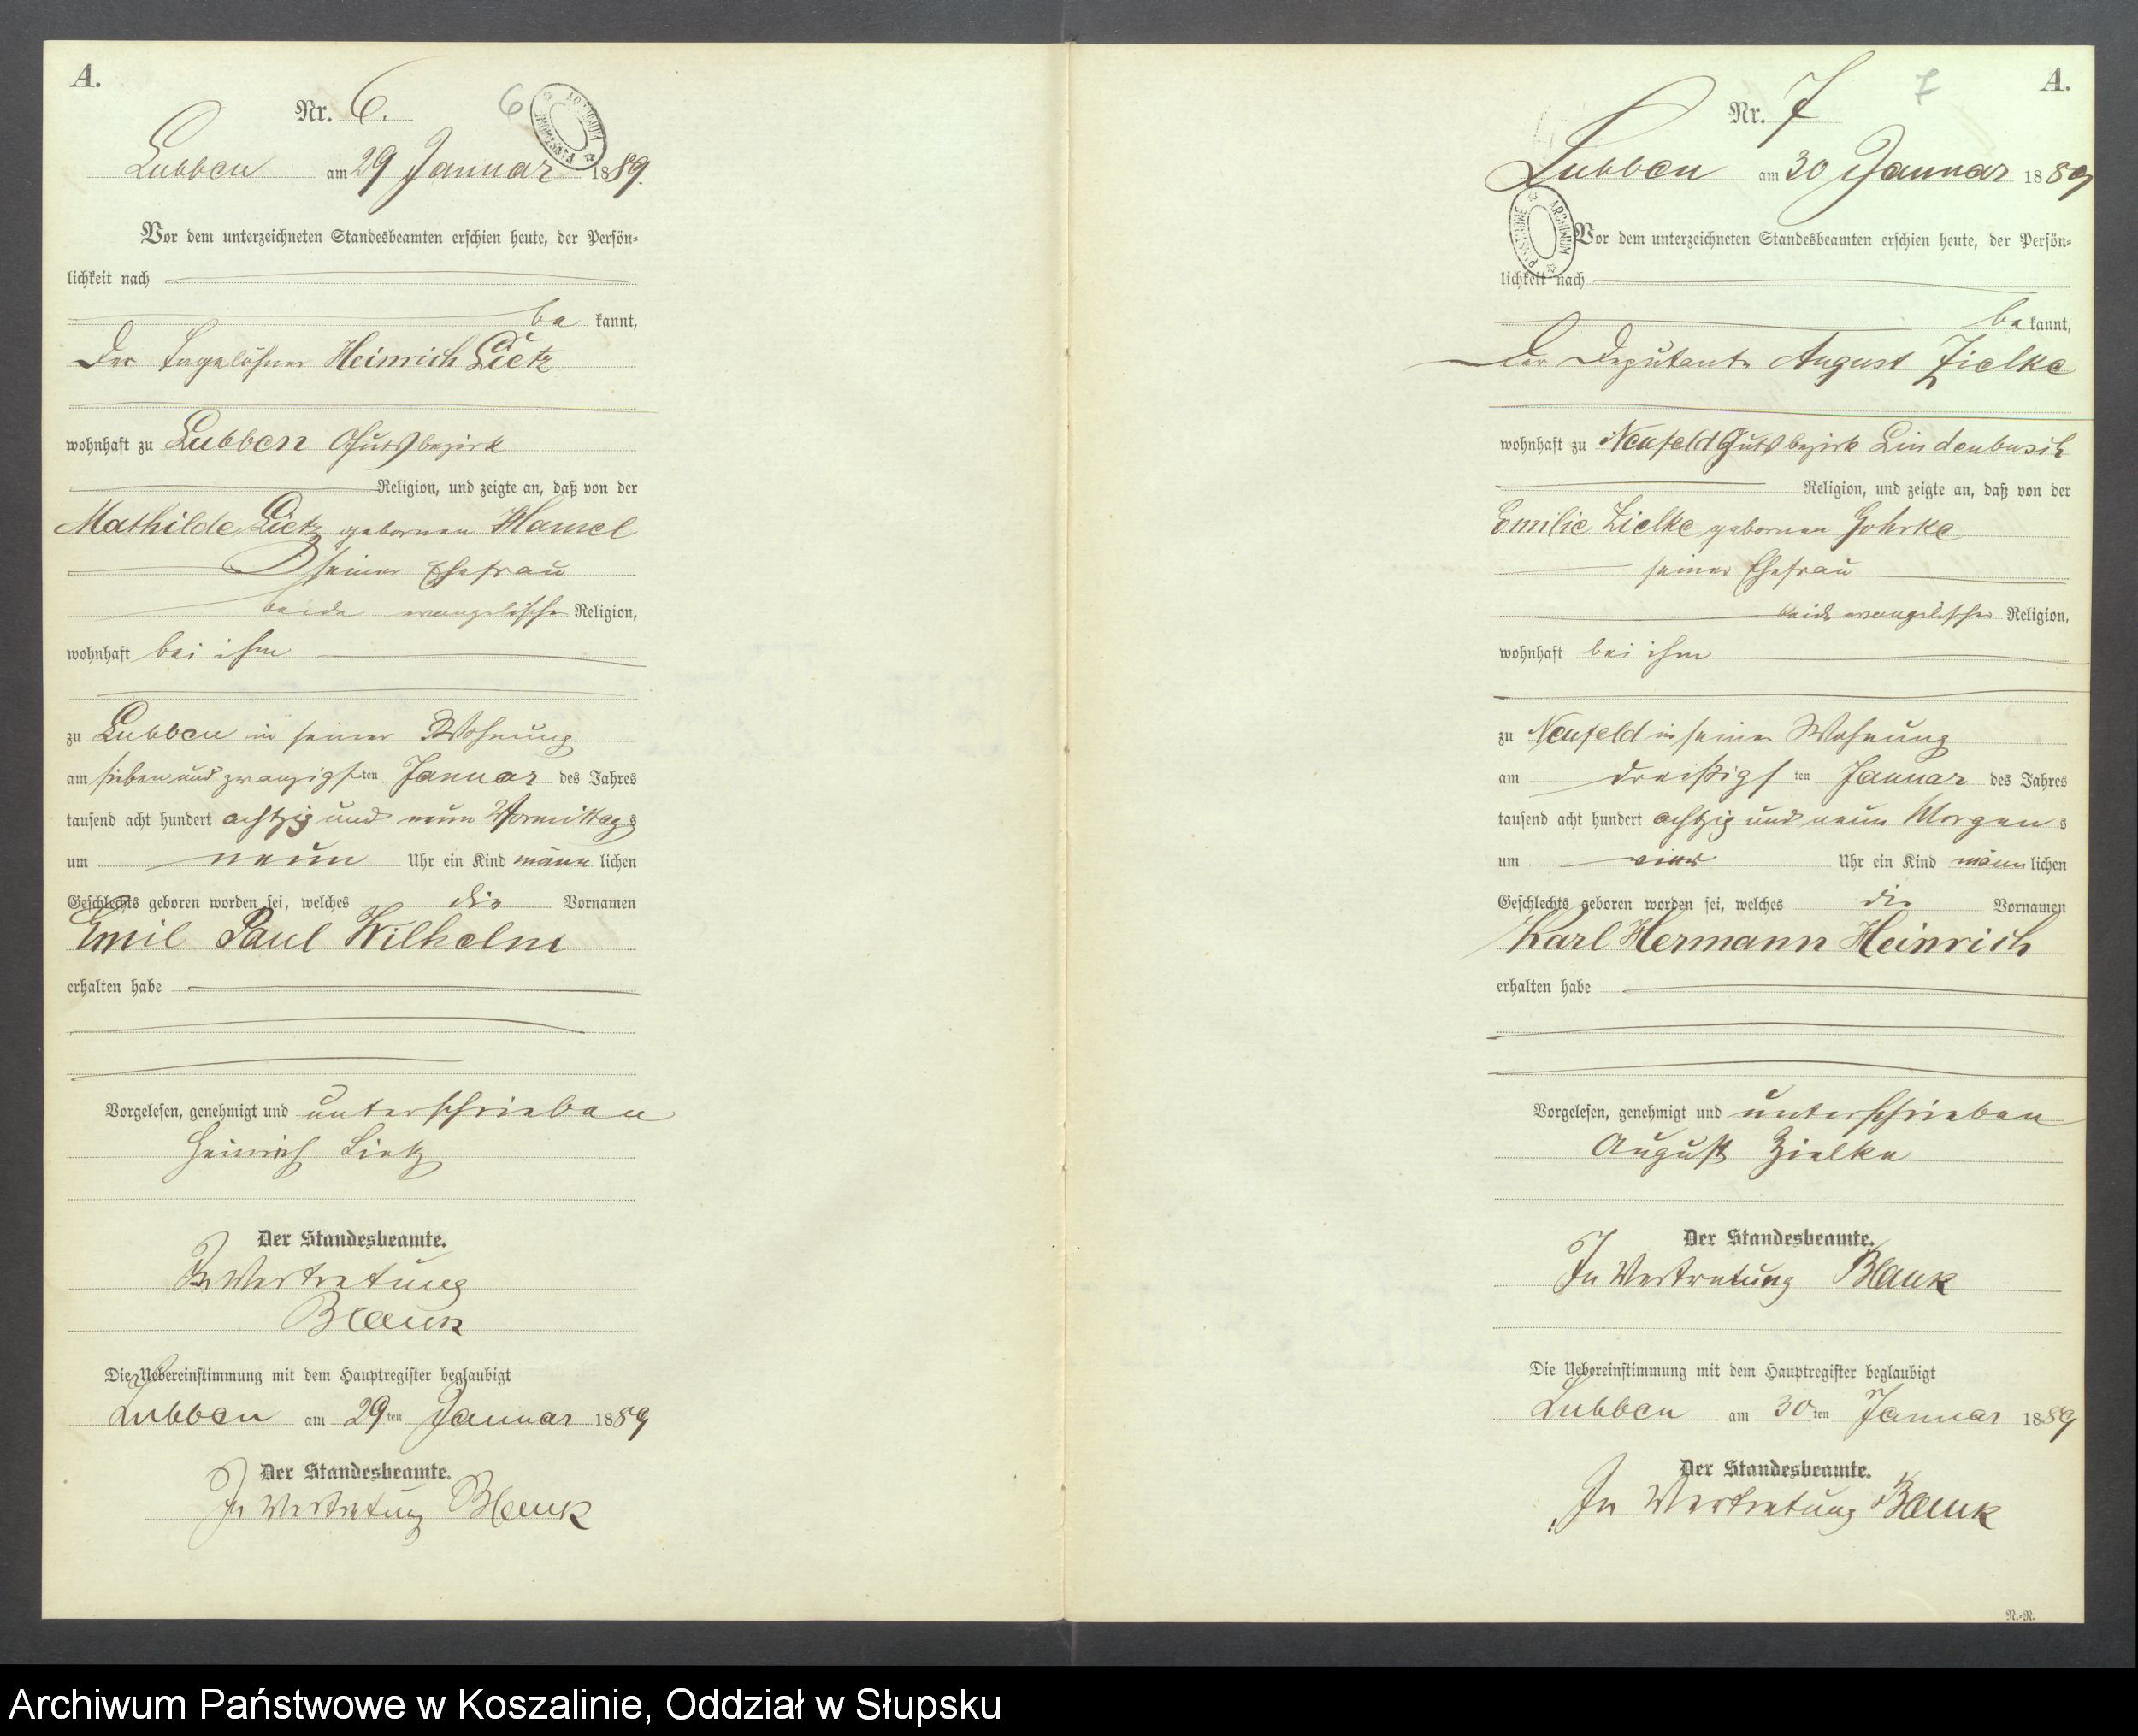 A.
Nr. 6.
6
ARCHIWUM PAŃSTWOWE
Lubben am 29 Januar 1889.
Vor dem unterzeichneten Standesbeamten erschien heute, der Persön=
lichkeit nach
be kannt,
Der Tagelöhner Heinrich Lietz
wohnhaft zu Lubben Gutsbezirk
Religion, und zeigte an, daß von der
Mathilde Lietz gebornen Hamel
seiner Ehefrau
beide evangelischer Religion,
wohnhaft bei ihm
zu Lubben in seiner Wohnung
am sieben und zwanzigsten Januar des Jahres
tausend acht hundert achtzig und neun Vormittags
um neun Uhr ein Kind männlichen
Geschlechts geboren worden sei, welches die Vornamen
Emil Paul Wilhelm
erhalten habe
Vorgelesen, genehmigt und unterschrieben
Heinrich Lietz
Der Standesbeamte.
In Vertretung
Blank
Die Uebereinstimmung mit dem Hauptregister beglaubigt
Lubben am 29ten Januar 1889
Der Standesbeamte.
In Vertretung Blank
A.
Nr. 7
7
Lubben am 30 Januar 1889
ARCHIWUM PAŃSTWOWE
Vor dem unterzeichneten Standesbeamten erschien heute, der Persön=
lichkeit nach
be kannt,
Der Deputant August Zielke
wohnhaft zu Neufeld Gutsbezirk Lindenbusch
Religion, und zeigte an, daß von der
Emilie Zielke gebornen Gohrke
seiner Ehefrau
beide evangelischer Religion,
wohnhaft bei ihm
zu Neufeld in seiner Wohnung
am dreißigsten Januar des Jahres
tausend acht hundert achtzig und neun Morgens
um vier Uhr ein Kind männlichen
Geschlechts geboren worden sei, welches die Vornamen
Karl Hermann Heinrich
erhalten habe
Vorgelesen, genehmigt und unterschrieben
August Zielke
Der Standesbeamte.
In Vertretung Blank
Die Uebereinstimmung mit dem Hauptregister beglaubigt
Lubben am 30ten Januar 1889
Der Standesbeamte.
In Vertretung Blank
N.-R.
Archiwum Państwowe w Koszalinie, Oddział w Słupsku